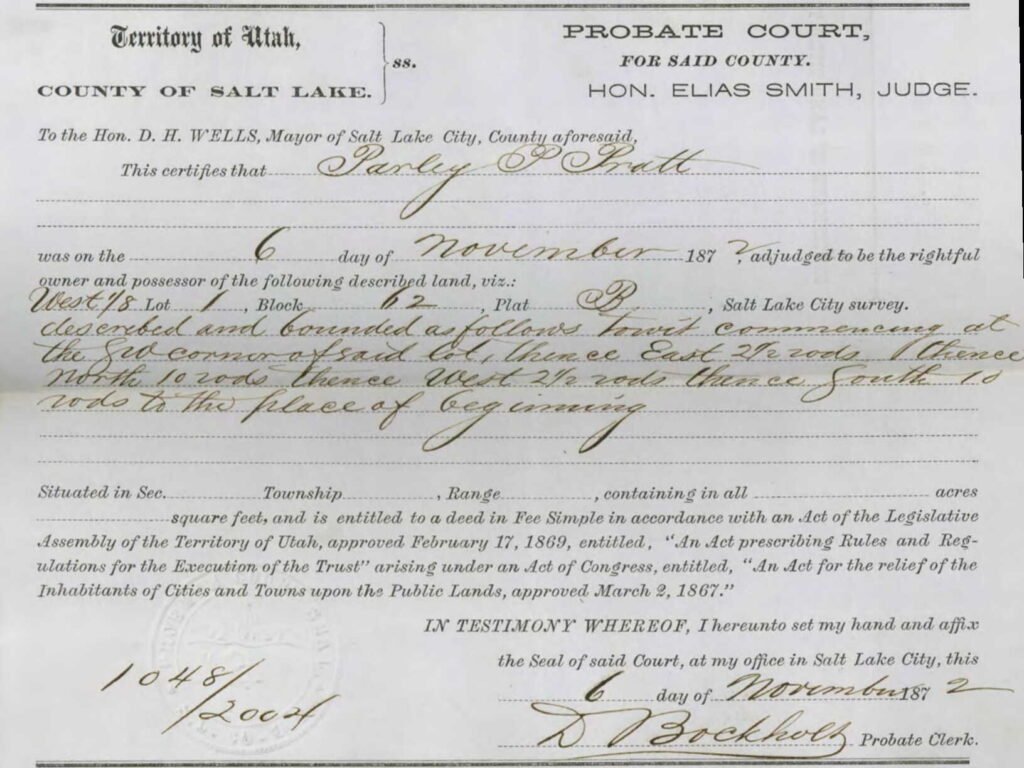 Territory of Utah,
COUNTY OF SALT LAKE.
ss.
PROBATE COURT,
FOR SAID COUNTY.
HON. ELIAS SMITH, JUDGE.
To the Hon. D. H. WELLS, Mayor of Salt Lake City, County aforesaid,
This certifies that Parley P Pratt
was on the 6 day of November 1872, adjudged to be the rightful
owner and possessor of the following described land, viz.:
West 1/8 Lot 1, Block 62, Plat B, Salt Lake City survey.
described and bounded as follows towit commencing at
the SW corner of said lot, thence East 2 1/2 rods thence
North 10 rods thence West 2 1/2 rods thence South 10
rods to the place of beginning
Situated in Sec. Township , Range , containing in all acres
square feet, and is entitled to a deed in Fee Simple in accordance with an Act of the Legislative
Assembly of the Territory of Utah, approved February 17, 1869, entitled, "An Act prescribing Rules and Reg-
ulations for the Execution of the Trust" arising under an Act of Congress, entitled, "An Act for the relief of the
Inhabitants of Cities and Towns upon the Public Lands, approved March 2, 1867."
IN TESTIMONY WHEREOF, I hereunto set my hand and affix
the Seal of said Court, at my office in Salt Lake City, this
6 day of November 1872
D Bockholt Probate Clerk.
1048/2004